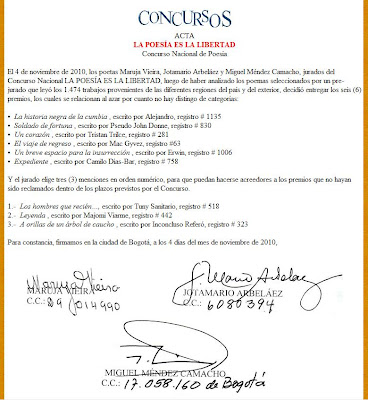 CONCURSOS
ACTA
LA POESÍA ES LA LIBERTAD
Concurso Nacional de Poesía
El 4 de noviembre de 2010, los poetas Maruja Vieira, Jotamario Arbeláez y Miguel Méndez Camacho, jurados del
Concurso Nacional LA POESÍA ES LA LIBERTAD, luego de haber analizado los poemas seleccionados por un pre-
jurado que leyó los 1.474 trabajos provenientes de las diferentes regiones del país y del exterior, decidió entregar los seis (6)
premios, los cuales se relacionan al azar por cuanto no hay distingo de categorías:
• La historia negra de la cumbia, escrito por Alejandro, registro # 1135
• Soldado de fortuna, escrito por Pseudo John Donne, registro # 830
• Un corazón, escrito por Tristan Trilce, registro # 281
• El viaje de regreso, escrito por Mac Gyvez, registro #63
• Un breve espacio para la insurrección, escrito por Erwin, registro # 1006
• Expediente, escrito por Camilo Dias-Bar, registro # 758
Y el jurado elige tres (3) menciones en orden numérico, para que puedan hacerse acreedores a los premios que no hayan
sido reclamados dentro de los plazos previstos por el Concurso.
1.- Los hombres que recién..., escrito por Tuny Sanitario, registro # 518
2.- Leyenda, escrito por Majomi Viarme, registro # 442
3.- A orillas de un árbol de caucho, escrito por Inconcluso Referó, registro # 323
Para constancia, firmamos en la ciudad de Bogotá, a los 4 días del mes de noviembre de 2010,
Maruja Vieira
MARUJA VIEIRA
C.C.: 29 014990
J. Mario Arbeláez
JOTAMARIO ARBELÁEZ
C.C.: 6080394
MIGUEL MÉNDEZ CAMACHO
C.C.: 17.058.160 de Bogotá